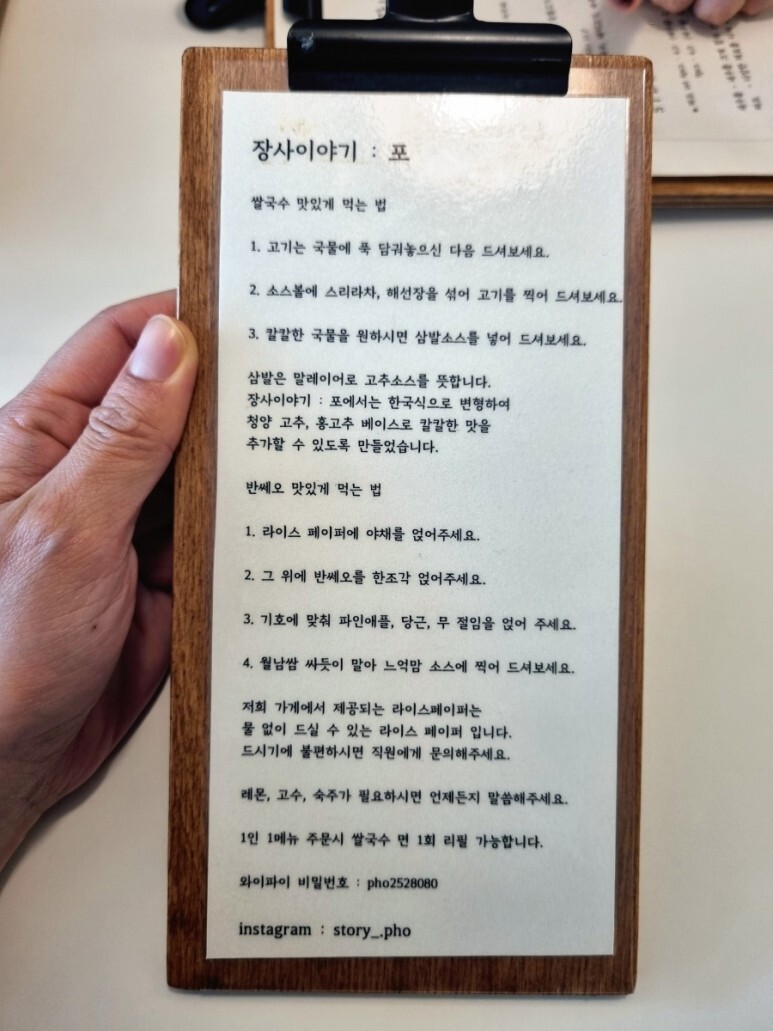 장사이야기 : 포
쌀국수 맛있게 먹는 법
1. 고기는 국물에 푹 담궈놓으신 다음 드셔보세요.
2. 소스볼에 스리라차, 해선장을 섞어 고기를 찍어 드셔보세요.
3. 칼칼한 국물을 원하시면 삼발소스를 넣어 드셔보세요.
삼발은 말레이어로 고추소스를 뜻합니다.
장사이야기 : 포에서는 한국식으로 변형하여
청양 고추, 홍고추 베이스로 칼칼한 맛을
추가할 수 있도록 만들었습니다.
반쎄오 맛있게 먹는 법
1. 라이스 페이퍼에 야채를 얹어주세요.
2. 그 위에 반쎄오를 한조각 얹어주세요.
3. 기호에 맞춰 파인애플, 당근, 무 절임을 얹어 주세요.
4. 월남쌈 싸듯이 말아 느억맘 소스에 찍어 드셔보세요.
저희 가게에서 제공되는 라이스페이퍼는
물 없이 드실 수 있는 라이스 페이퍼 입니다.
드시기에 불편하시면 직원에게 문의해주세요.
레몬, 고수, 숙주가 필요하시면 언제든지 말씀해주세요.
1인 1메뉴 주문시 쌀국수 면 1회 리필 가능합니다.
와이파이 비밀번호 : pho2528080
instagram : story_.pho